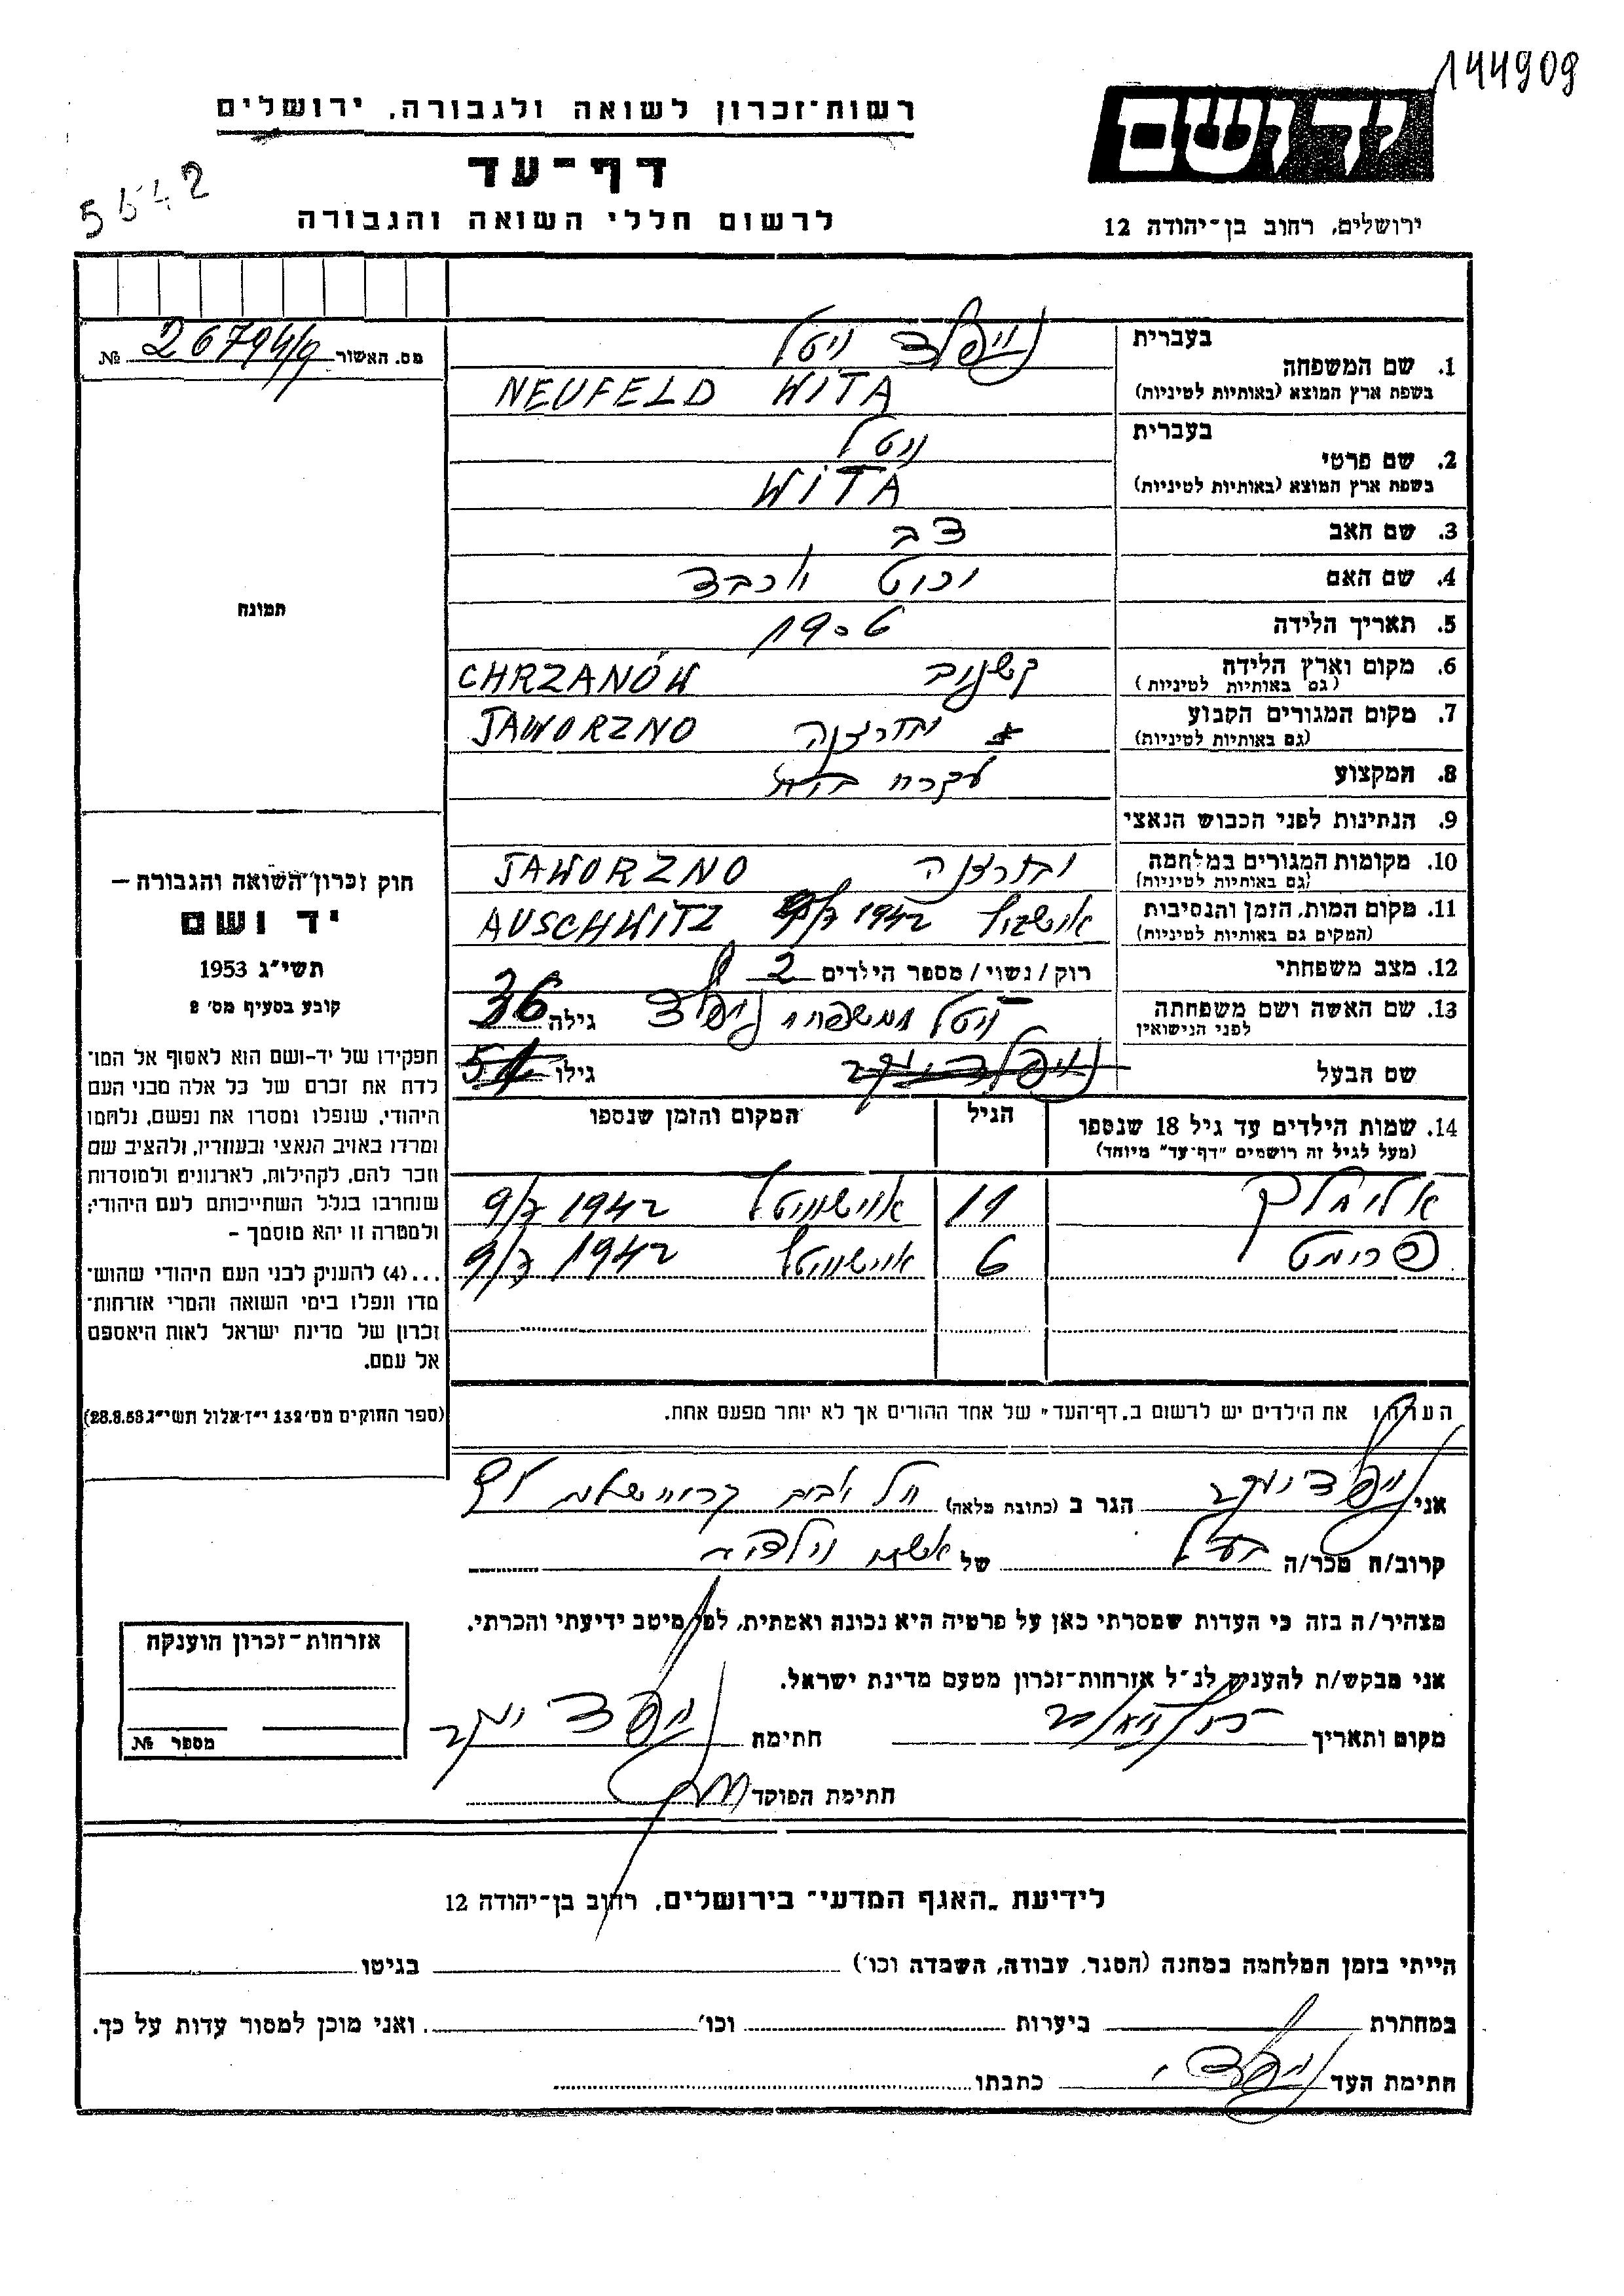 144909
יד ושם
רשות־זכרון לשואה ולגבורה, ירושלים
דף־עד
לרשום חללי השואה והגבורה
ירושלים, רחוב בן־יהודה 12
5642
מס. האשור 26794/9 №
בעברית נויפלד ויטל
1. שם המשפחה
בשפת ארץ המוצא (באותיות לטיניות) NEUFELD WITA
בעברית ויטל
2. שם פרטי
בשפת ארץ המוצא (באותיות לטיניות) WITA
3. שם האב צבי
4. שם האם יוכבד
5. תאריך הלידה 1906
6. מקום וארץ הלידה CHRZANÓW
(גם באותיות לטיניות)
7. מקום המגורים הקבוע JAWORZNO
(גם באותיות לטיניות)
8. המקצוע עקרת בית
9. הנתינות לפני הכבוש הנאצי
10. מקומות המגורים במלחמה JAWORZNO
(גם באותיות לטיניות)
11. מקום המות, הזמן והנסיבות 1942 AUSCHWITZ
(המקום גם באותיות לטיניות)
12. מצב משפחתי רוק/נשוי/מספר הילדים 2
13. שם האשה ושם משפחתה ויטל משפחה נויפלד גילה 36
לפני הנישואין
שם הבעל נויפלד יעקב גילו
14. שמות הילדים עד גיל 18 שנספו הגיל המקום והזמן שנספו
(מעל לגיל זה רושמים "דף־עד" מיוחד)
אלימלך 11 אוישוויץ 9/7 1942
פרומט 6 אוישוויץ 9/7 1942
הערה: את הילדים יש לרשום ב„דף־העד" של אחד ההורים אך לא יותר מפעם אחת.
תמונה
חוק זכרון השואה והגבורה —
יד ושם
תשי״ג 1953
קובע בסעיף מס׳ 2
תפקידו של יד־ושם הוא לאסוף אל המו־
לדת את זכרם של כל אלה מבני העם
היהודי, שנפלו ומסרו את נפשם, נלחמו
ומרדו באויב הנאצי ובעוזריו, ולהציב שם
וזכר להם, לקהילות, לארגונים ולמוסדות
שנחרבו בגלל השתייכותם לעם היהודי;
ולמטרה זו יהא מוסמך –
...(4) להעניק לבני העם היהודי שהוש־
מדו ונפלו בימי השואה והמרי אזרחות־
זכרון של מדינת ישראל לאות היאספם
אל עמם.
(ספר החוקים מס׳ 132 י״ז אלול תשי״ג 28.8.53)
אני נויפלד יעקב הגר ב (כתובת מלאה)
קרוב/ה מכר/ה בעל של אשתו וילדיה
מצהיר/ה בזה כי העדות שמסרתי כאן על פרטיה היא נכונה ואמתית, לפי מיטב ידיעתי והכרתי.
אני מבקש/ת להעניק לנ״ל אזרחות־זכרון מטעם מדינת ישראל.
מקום ותאריך חתימת נויפלד יעקב
חתימת הפוקד
אזרחות־זכרון הוענקה
מספר №
לידיעת „האגף המדעי" בירושלים, רחוב בן־יהודה 12
הייתי בזמן המלחמה במחנה (הסגר, עבודה, השמדה וכו׳) בגיטו
במחתרת ביערות וכו׳ ואני מוכן למסור עדות על כך.
חתימת העד נויפלד י. כתבתו